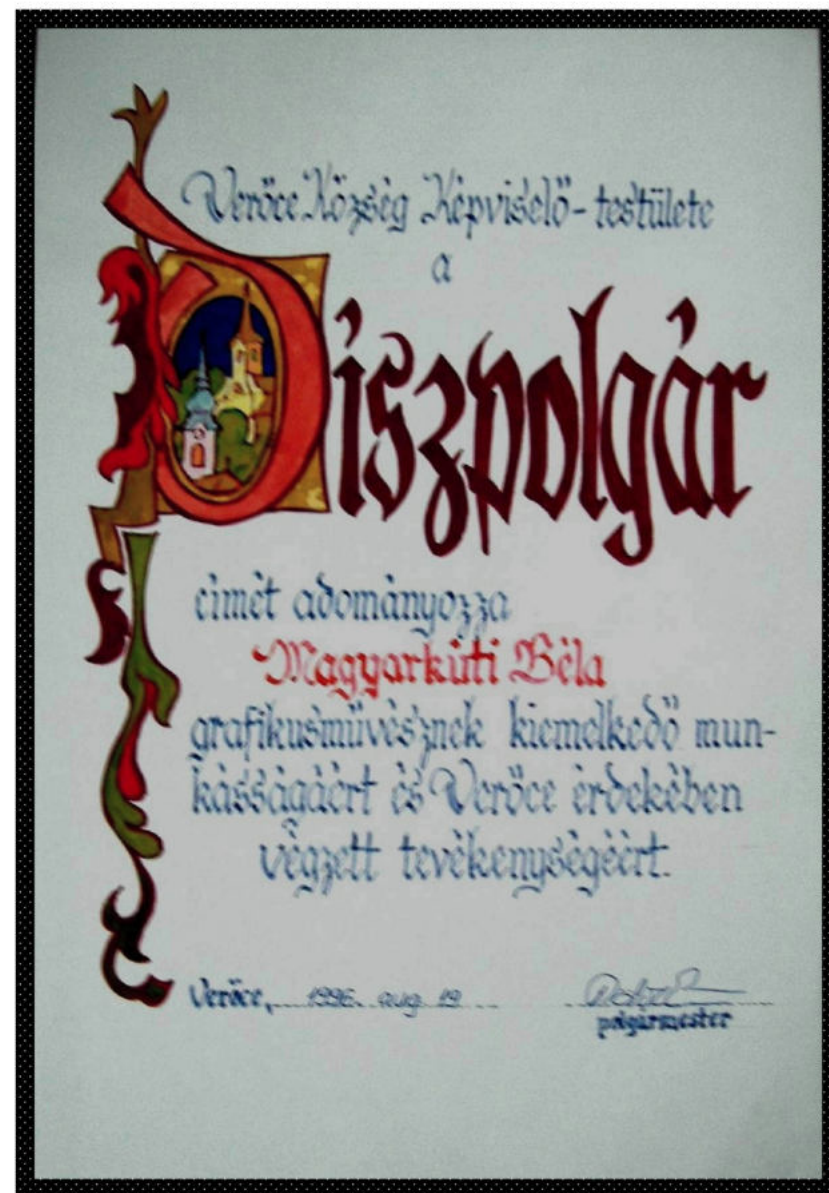 Verőce Község Képviselő-testülete
a
Díszpolgár
címét adományozza
Magyarkúti Béla
grafikusművésznek kiemelkedő mun-
kásságáért és Verőce érdekében
végzett tevékenységéért.
Verőce, 1996. aug. 19
polgármester